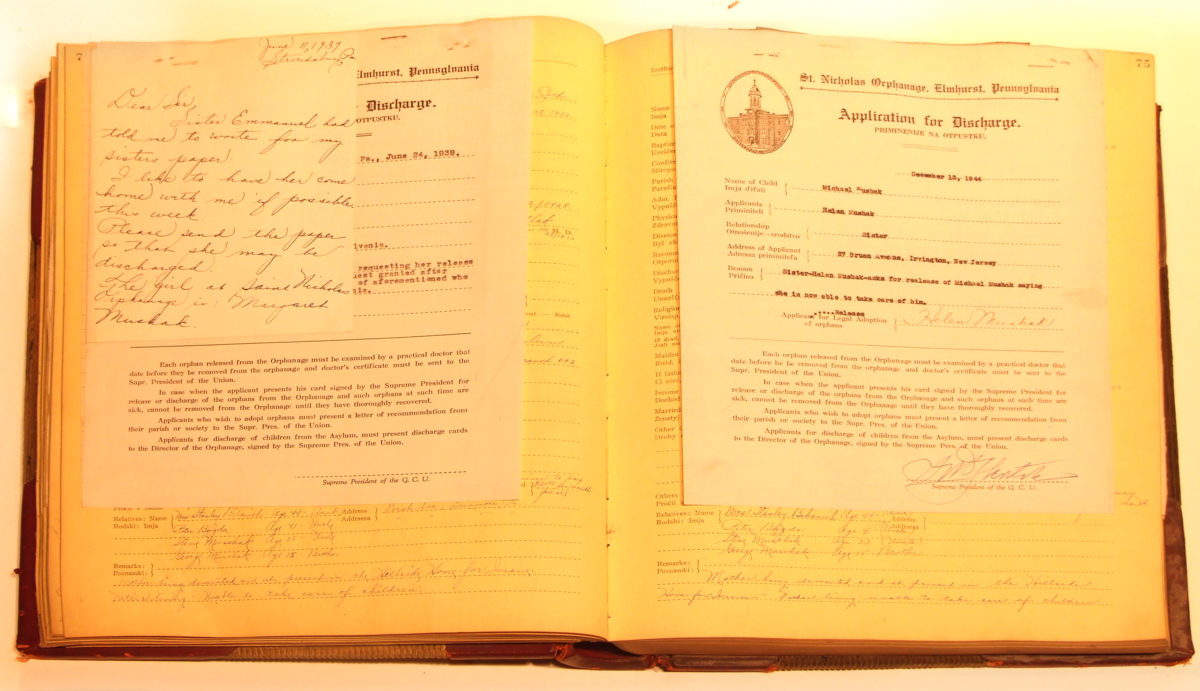 7
June 11, 1939
Stroudsburg Pa
Dear Sir,
Sister Emmanuel had
told me to write for my
sisters paper.
I like to have her come
home with me if possible,
this week.
Please send the paper
so than she may be
discharged.
The girl at Saint Nicholas
Orphanage is: Margaret
Mushak.
Elmhurst, Pennsylvania
Discharge.
OTPUSTKU.
Pa., June 24, 1939.
lvania.
requesting her release
est granted after
of aforementioned who
is.
Each orphan released from the Orphanage must be examined by a practical doctor that
date before they be removed from the orphanage and doctor's certificate must be sent to the
Supr. President of the Union.
In case when the applicant presents his card signed by the Supreme President for
release or discharge of the orphans from the Orphanage and such orphans at such time are
sick, cannot be removed from the Orphanage until they have thoroughly recovered.
Applicants who wish to adopt orphans must present a letter of recommendation from
their parish or society to the Supr. Pres. of the Union.
Applicants for discharge of children from the Asylum, must present discharge cards
to the Director of the Orphanage, signed by the Supreme Pres. of the Union.
Supreme President of the G. C. U.
Relatives: Name
Rodaki: Imja
Address
Adressa
Mrs Stanley Age 44 Aunt
Peter Age 41 Uncle
Steve Mushak Age 33 Uncle
George Mushak Age 15 Brother
Remarks:
Poznamki:
Mother living demented and at present in the Hillside Home for Insane
Father living - Unable to take care of children
75
St. Nicholas Orphanage, Elmhurst, Pennsylvania
Application for Discharge.
PRIMINENIJE NA OTPUSTKU.
December 13, 1944
Name of Child
Imja d'ifati
Michael Mushak
Applicants
Priminiteli
Helen Mushak
Relationship
Otnošenije-srodstvo
Sister
Address of Applicant
Adresa priminitela
27 Bruen Avenue, Irvington, New Jersey
Reason
Pričina
Sister-Helen Mushak-asks for reelease of Michael Mushak saying
she is now able to take care of him.
.....Release
Applicant for Legal Adoption
of orphans
Helen Mushak
Each orphan released from the Orphanage must be examined by a practical doctor that
date before he be removed from the orphanage and doctor's certificate must be sent to the
Supr. President of the Union.
In case when the applicant presents his card signed by the Supreme President for
release or discharge of the orphans from the Orphanage and such orphans at such time are
sick, cannot be removed from the Orphanage until they have thoroughly recovered.
Applicants who wish to adopt orphans must present a letter of recommendation from
their parish or society to the Supr. Pres. of the Union.
Applicants for discharge of children from the Asylum, must present discharge cards
to the Director of the Orphanage, signed by the Supreme Pres. of the Union.
Supreme President of the G. C. U.
Others
Pročii
Relatives: Name
Rodaki: Imja
Address
Adressa
Mrs Stanley Age 44
Peter Age 41 Uncle
Steve Mushak Age 33 (Uncle)
George Mushak Age 15 Brother
Remarks:
Poznamki:
Mother living demented and at present in the Hillside
Home for Insane - Father living unable to take care of children